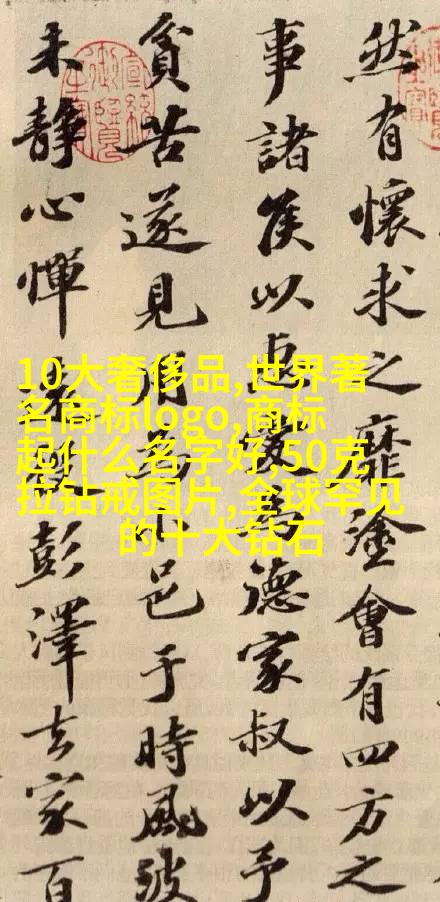 然有懷求之靡塗會有四方之
事諸侯以惠愛為德家叔以予
貧苦遂見用為小邑于時風波
未靜心憚遠役彭澤去家百
10大奢侈品,世界著
名商标logo,商标
起什么名字好,50克
拉钻戒图片,全球罕见
的十大钻石